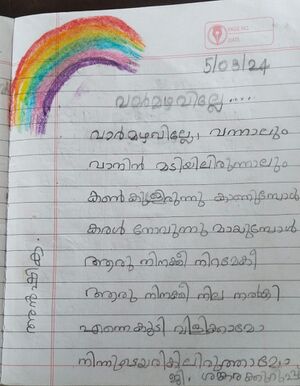 PAGE NO.
DATE
5/09/24
വാർമഴവില്ലേ....
വാർമഴവില്ലേ, വന്നാലും
വാനിൻ മടിയിലിരുന്നാലും
കൺകുളിരുന്നു കാണുമ്പോൾ
കരൾ നോവുന്നു മായുമ്പോൾ
ആരു നിനക്കീ നിറമേകീ
ആരു നിനക്കീ നില നൽകി
എന്നെകൂടി വിളിക്കാമോ
നിന്നുടെയരികിലിരുത്താമോ
ജി. ശങ്കരക്കുറുപ്പ്